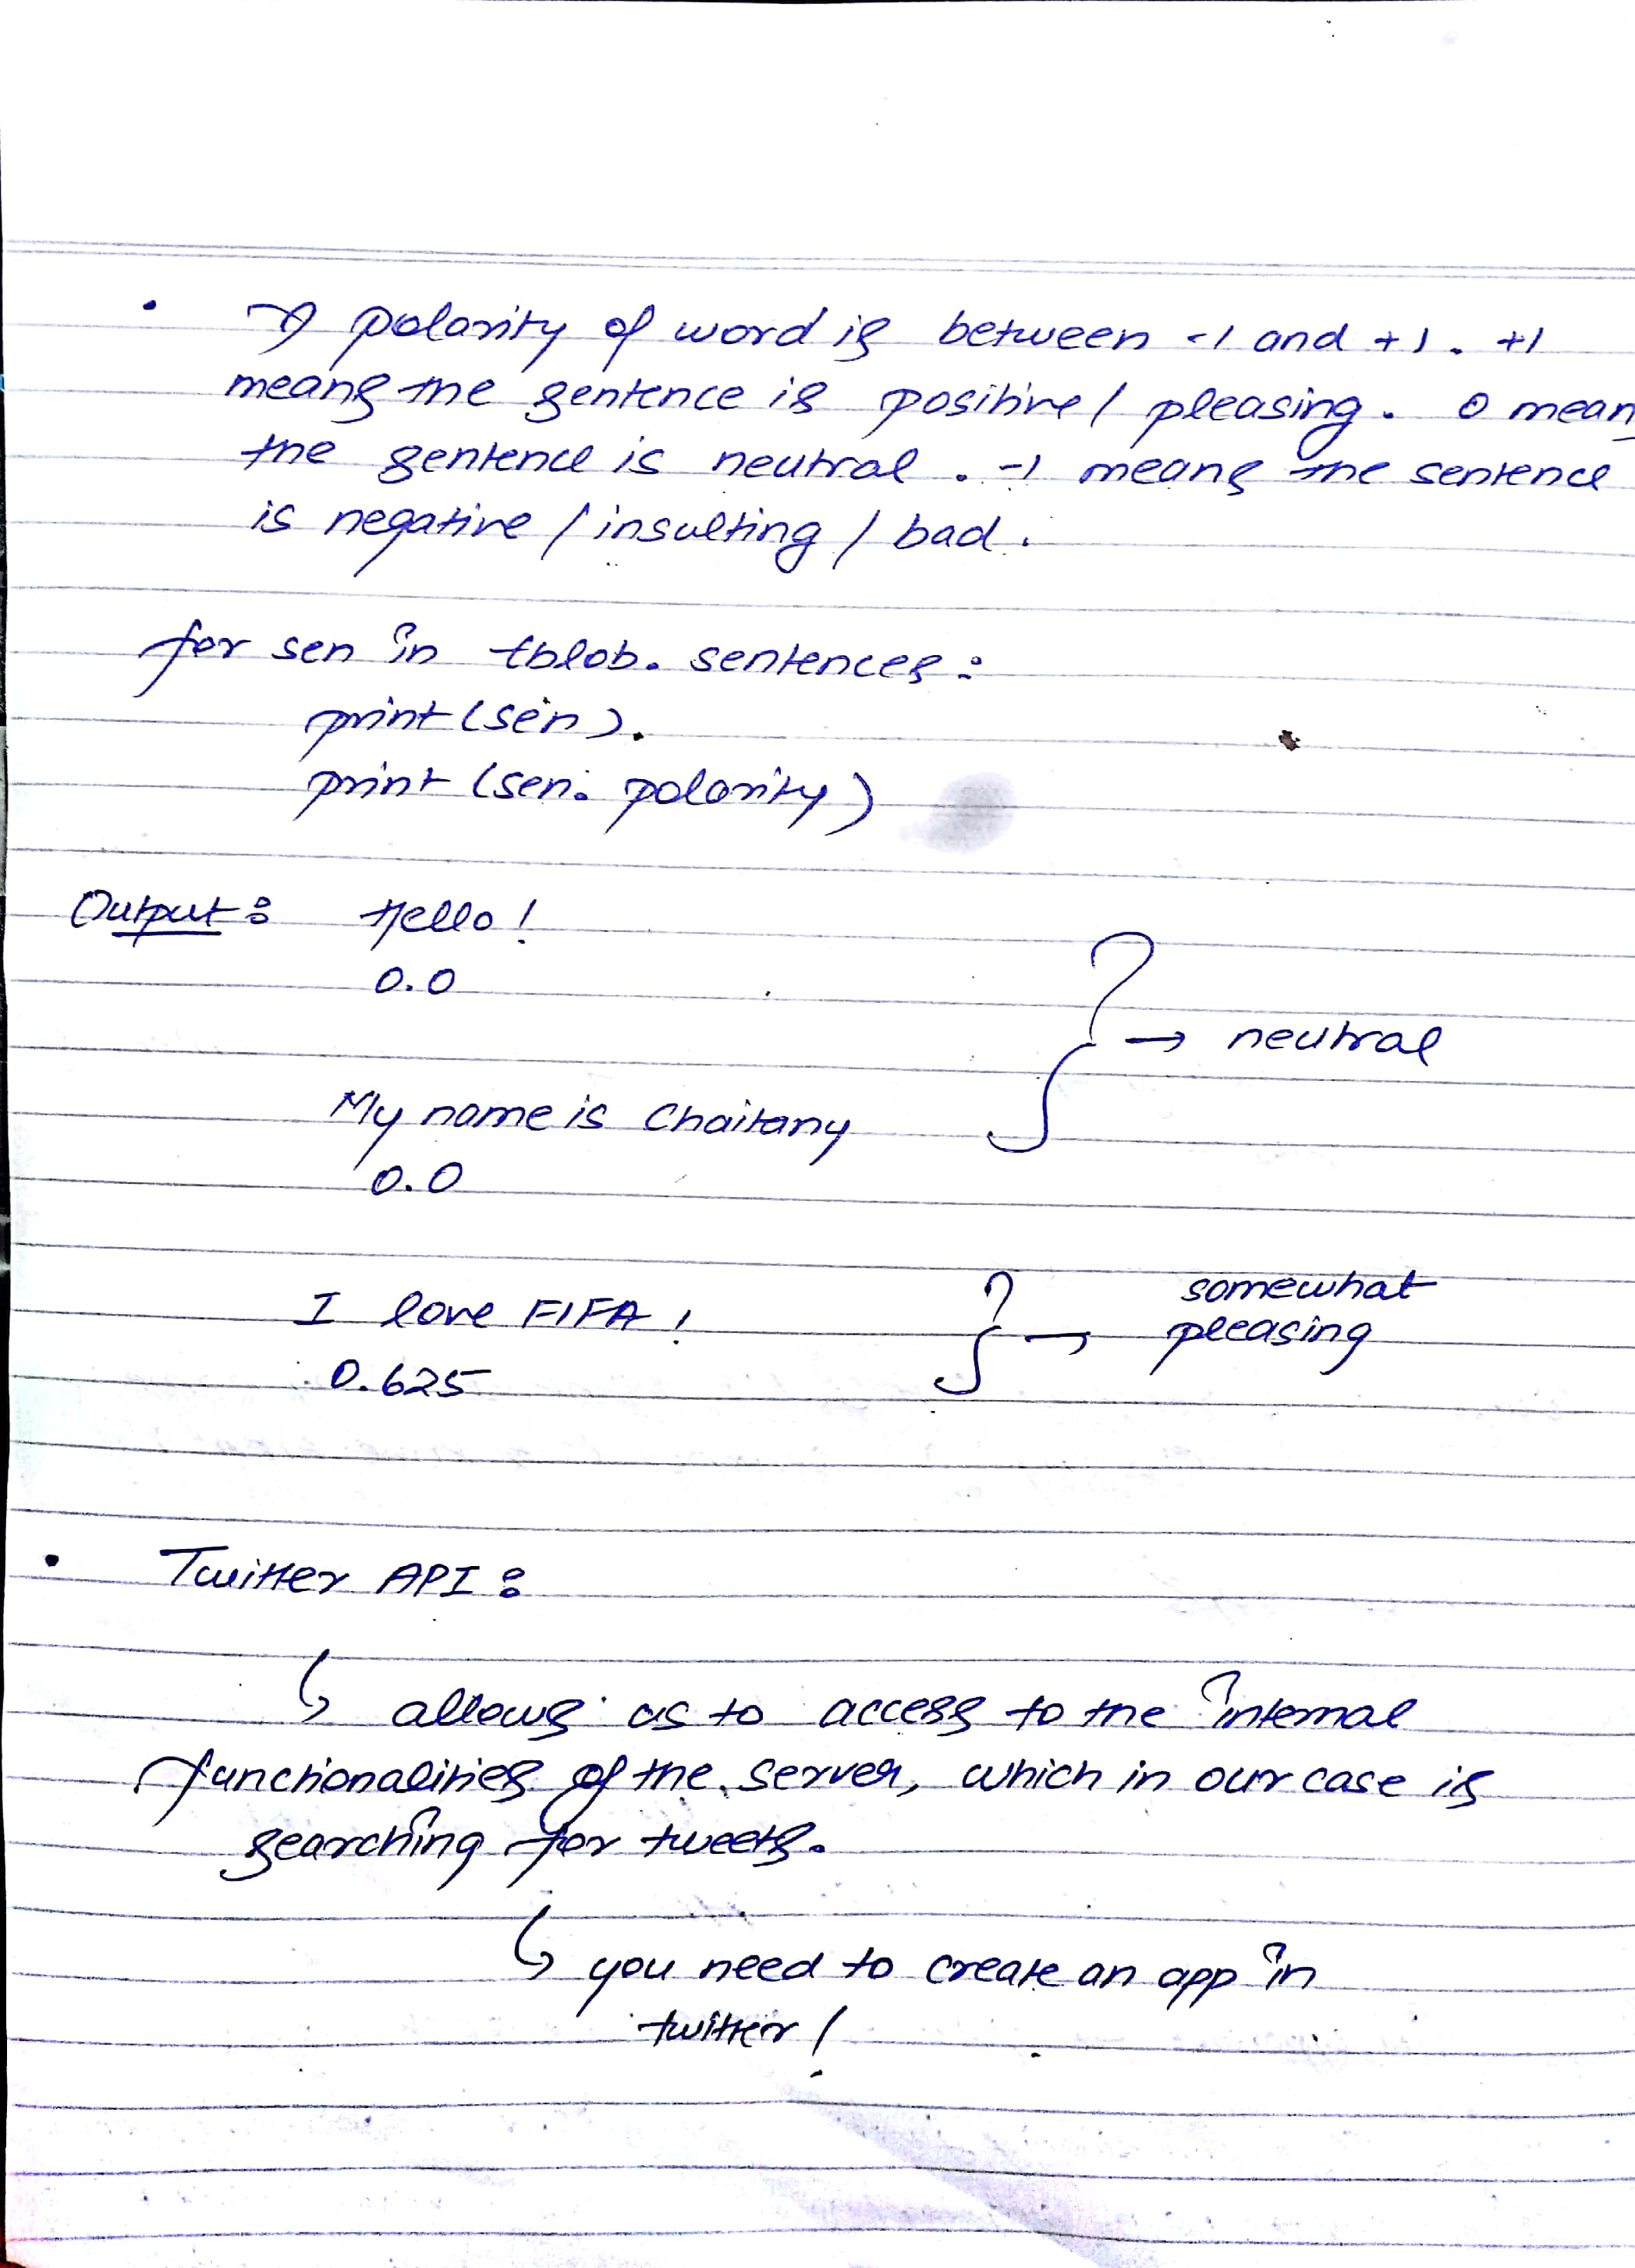 • A polarity of word is between -1 and +1. +1
means the sentence is positive / pleasing. 0 mean
the sentence is neutral. -1 means the sentence
is negative / insulting / bad.
for sen in tblob. sentences:
print (sen).
print (sen. polarity)
Output: Hello!
0.0
→ neutral
My name is Chaitany
0.0
I love FIFA! → somewhat
pleasing
0.625
• Twitter API:
↳ allows us to access to the internal
functionalities of the server, which in our case is
searching for tweets.
↳ you need to create an app in
twitter!